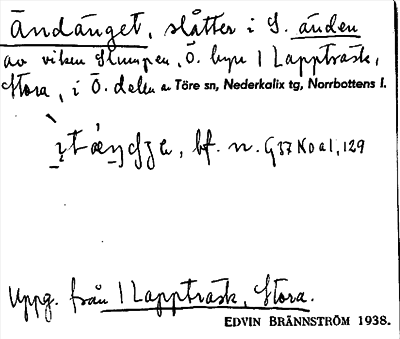 Ändänget, slåtter i S. änden
av viken Slumpen, Ö. byn 1 Lappträsk,
Stora, i Ö. delen av Töre sn, Nederkalix tg, Norrbottens l.
bf. n. G37 Koal, 129
Uppg. från 1 Lappträsk, Stora.
EDVIN BRÄNNSTRÖM 1938.